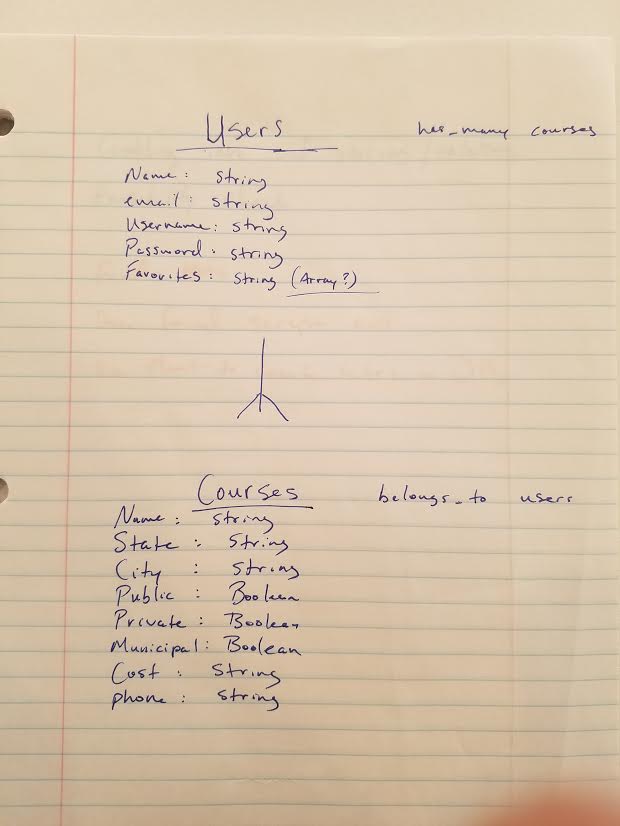 Users has_many courses
Name: string
email: string
Username: string
Password: string
Favorites: string (Array?)
Courses belongs_to users
Name: string
State: String
City: string
Public: Boolean
Private: Boolean
Municipal: Boolean
Cost: String
phone: String